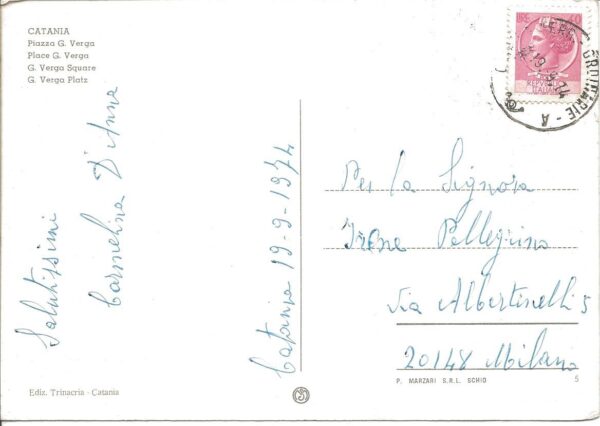 CATANIA
Piazza G. Verga
Place G. Verga
G. Verga Square
G. Verga Platz
Salutissimi
Carmelina D'Anna
Catania 19-9-1974
LIRE 40
REPUBBLICA
ITALIANA
ORDINARIE - A
19.9.74
Per la Signora
Irene Pellegrino
Via Albertinelli 5
20148 Milano
Ediz. Trinacria - Catania
P. MARZARI S.R.L. SCHIO
5